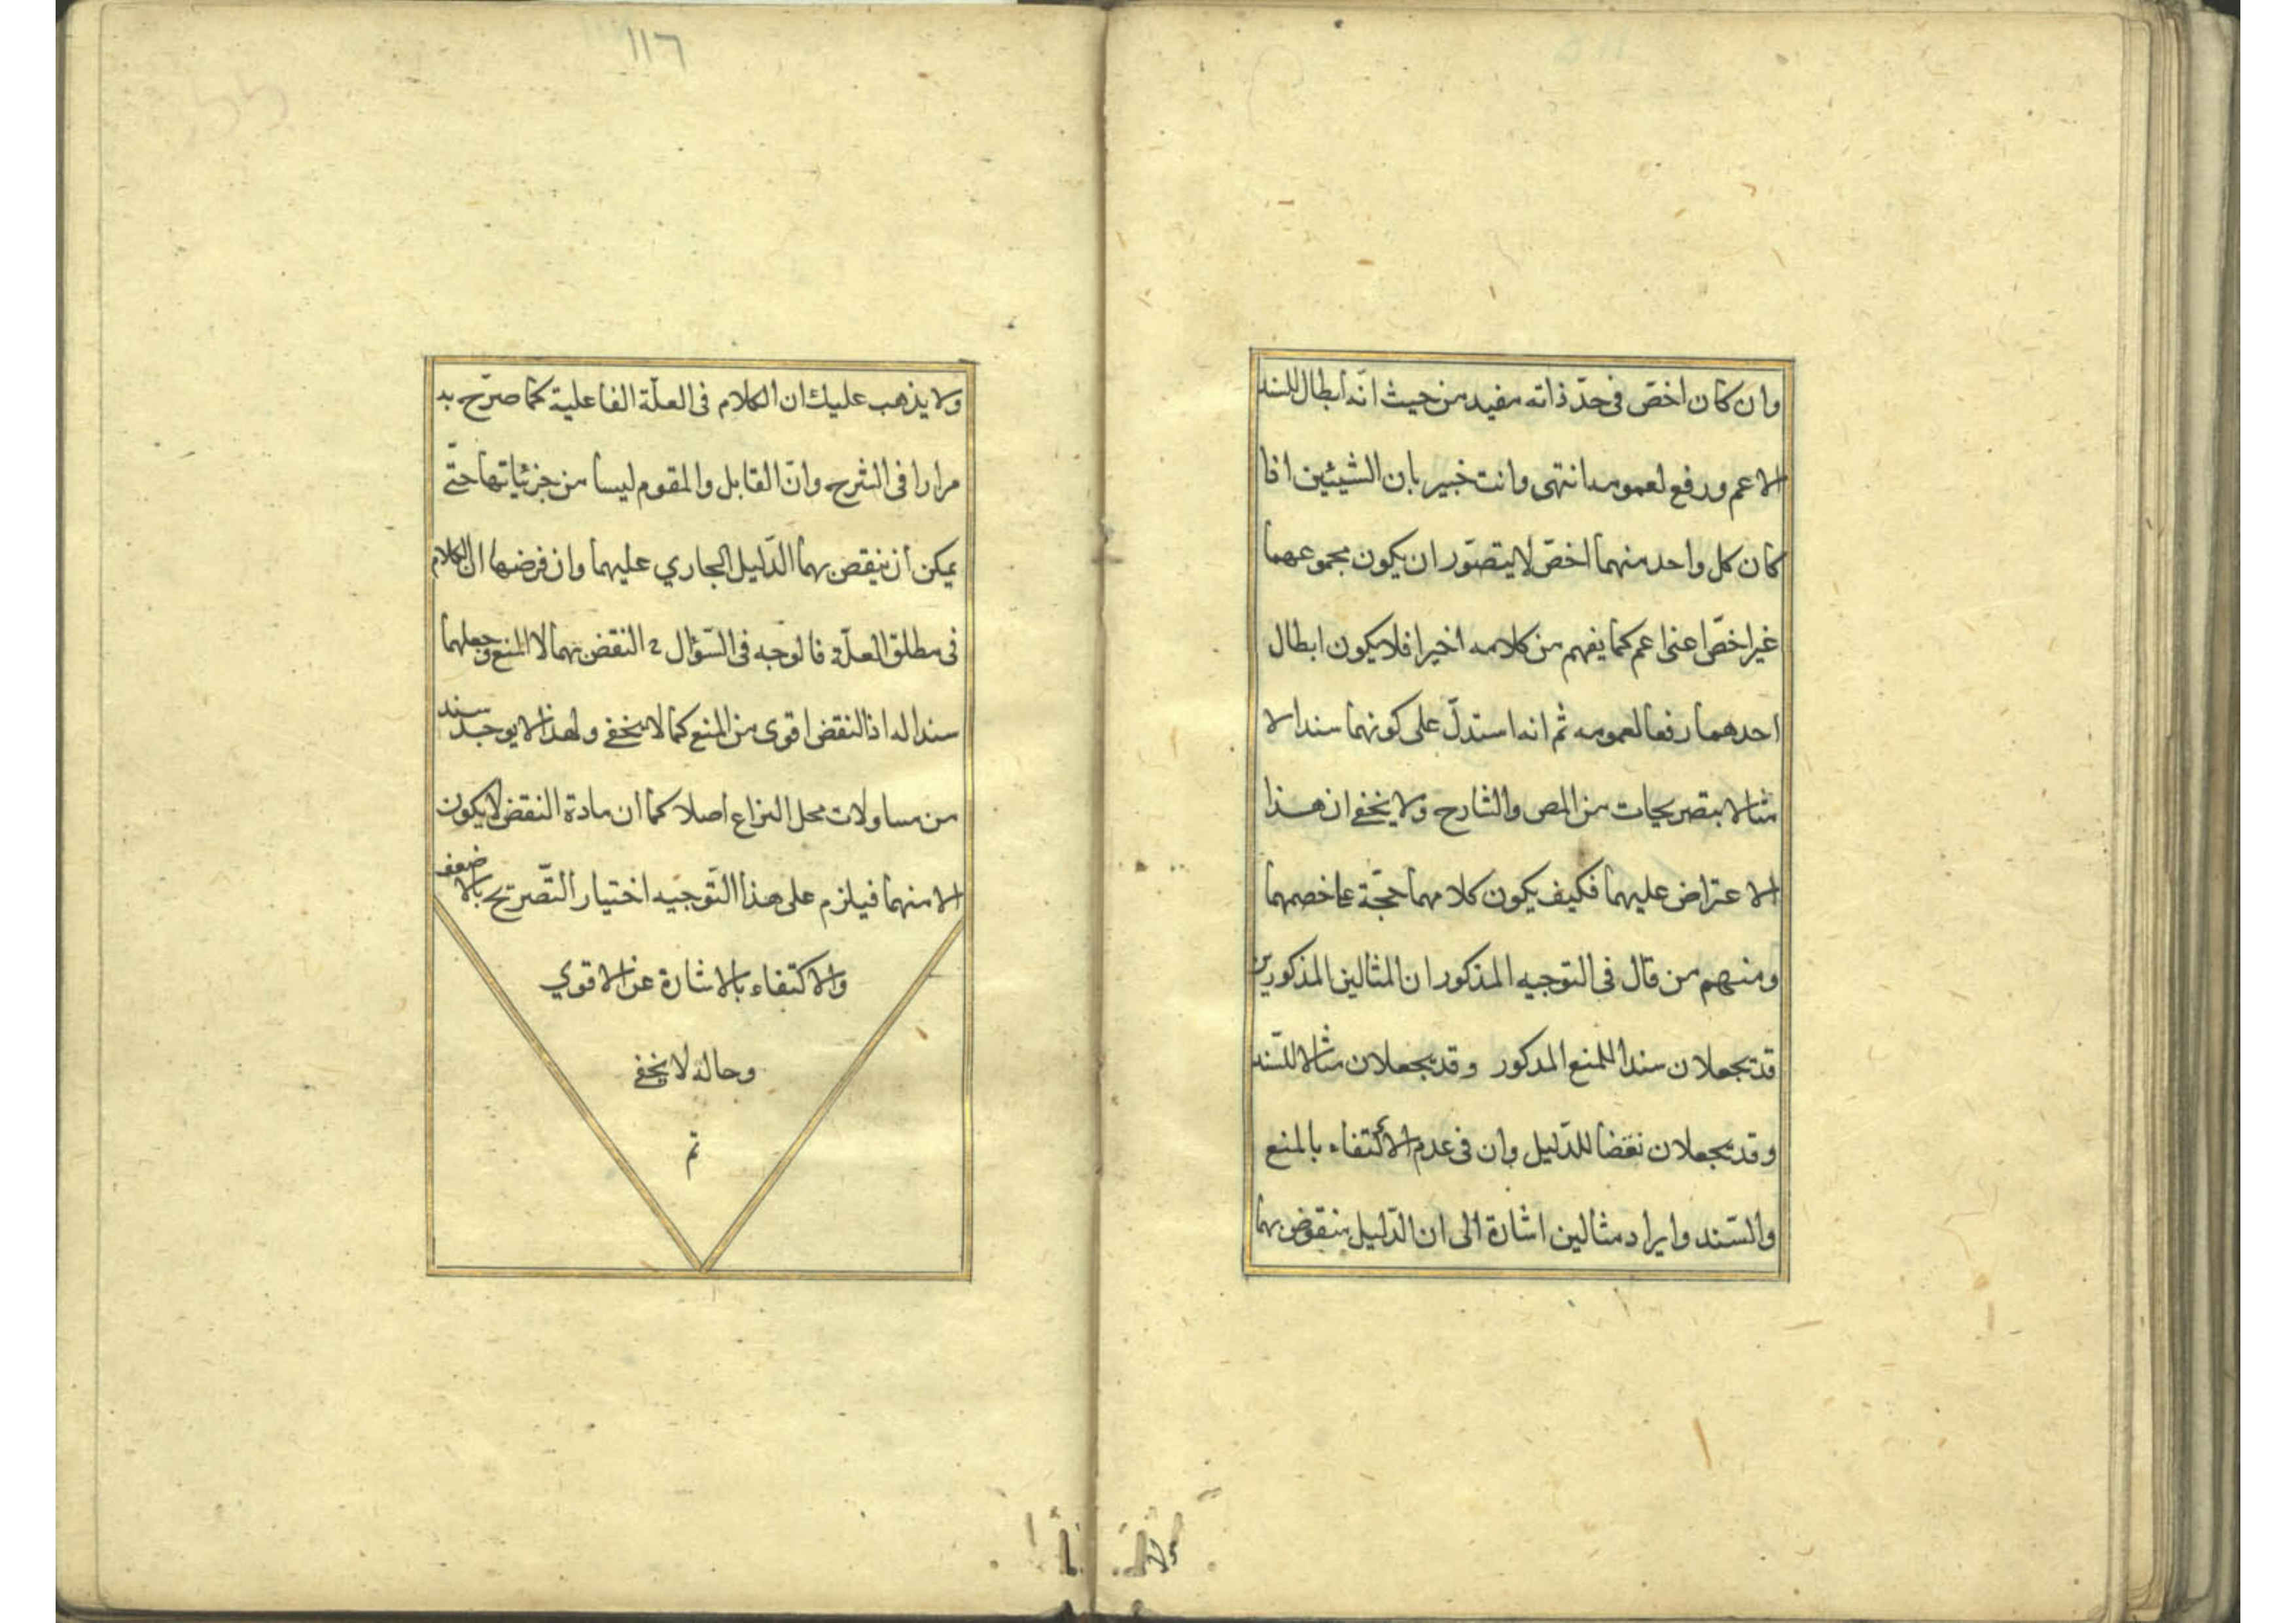 وان كان اخصّ فى حدّ ذاته مفيد من حيث انّه ابطال للسند
الاعم ورفع لعمومه انتهى وانت خبير بان الشيئين اذا
كان كل واحد منهما اخصّ لا يتصوّر ان يكون مجموعهما
غير اخصّ اعنى اعم كما يفهم من كلامه اخيرا فلا يكون ابطال
احدهما رفعا لعمومه ثم انه استدلّ على كونهما سندا لا
مثالا بتصريحات من المص والشارح ولا يخفى ان هذا
الاعتراض عليهما فكيف يكون كلامهما حجّة على خصمهما
ومنهم من قال فى التوجيه المذكور ان المثالين المذكورين
قد تجعلان سندا للمنع المذكور وقد تجعلان مثالا للسّند
وقد تجعلان نقضا للدّليل وان فى عدم الاكتفاء بالمنع
والسّند وايراد مثالين اشارة الى ان الدّليل منقوض بهما
١١٦
ولا يذهب عليك ان الكلام فى العلّة الفاعلية كما صرّح به
مرارا فى الشرح وانّ القابل والمقوم ليسا من جزئياتها حتّى
يمكن ان ينقض بهما الدّليل الجاري عليهما وان فرضها ان الكلام
فى مطلق العلّة فالوجه فى السّؤال ح النقض بهما لا المنع وجعلهما
سندا له اذ النقض اقوى من المنع كما لا يخفى ولهذا لا يوجد سند
من مساولات محل النزاع اصلا كما ان مادة النقض لا يكون
الا منهما فيلزم على هذا التّوجيه اختيار التّصريح بالاضعف
والاكتفاء بالاشارة عن الاقوي
وحاله لا يخفى
تم